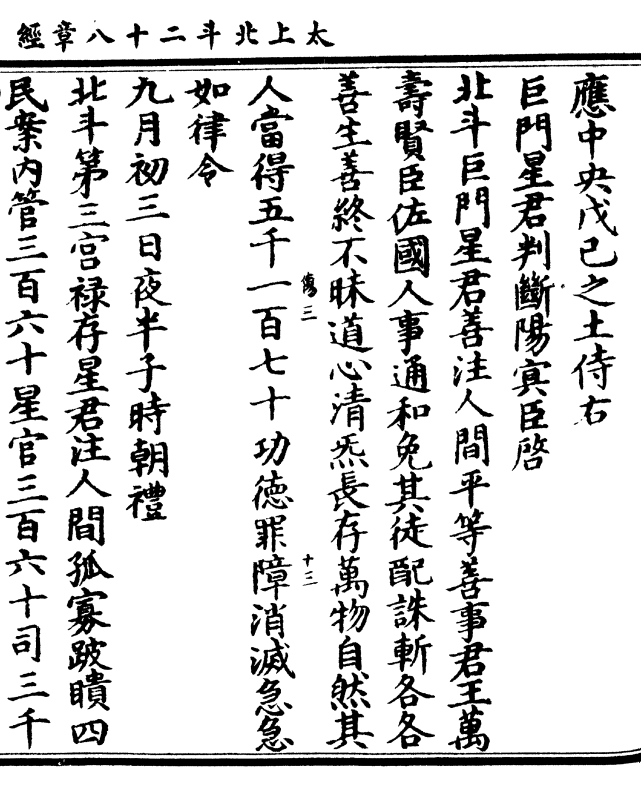 太上北斗二十八章經
應中央戊己之土侍右
巨門星君判斷陽㝠臣啓
北斗巨門星君善注人間平等善事君王萬
壽賢臣佐國人事通和免其徒配誅斬各各
善生善終不昧道心清炁長存萬物自然其
傷三
十三
人當得五千一百七十功德罪障消滅急急
如律令
九月初三日夜半子時朝禮
北斗第三宮祿存星君注人間孤寡跛瞶四
民案内管三百六十星官三百六十司三千